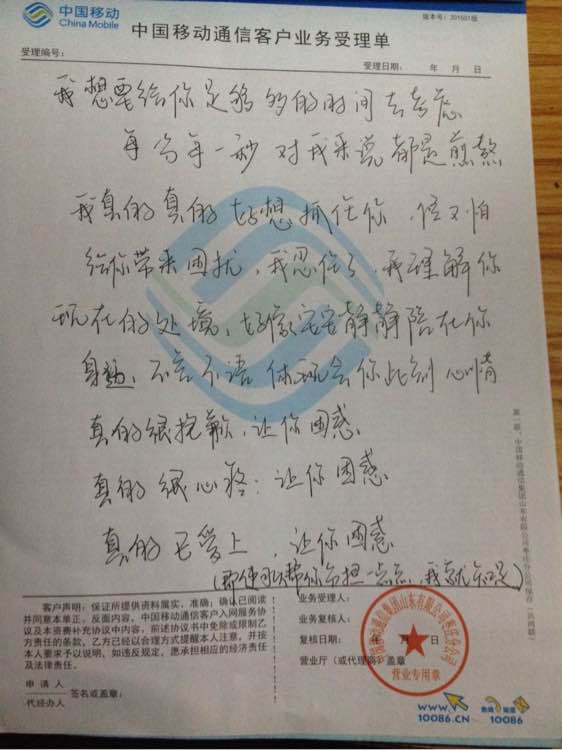 中国移动
China Mobile
版本号：201501版
中国移动通信客户业务受理单
受理编号：
受理日期： 年 月 日
我想要给你足够多的时间去考虑
每分每一秒 对我来说都是煎熬
我真的真的好想抓住你，但又怕
给你带来困扰，我忍住了，我理解你
现在的处境，好像安安静静陪在你
身边，不言不语 体现会你此刻心情
真的很抱歉，让你困惑
真的很心疼：让你困惑
真的已爱上，让你困惑
（即使可以帮你分担一点点，我就知足）
客户声明：保证所提供资料属实、准确；确认已阅读
并同意本单正、反面内容，中国移动客户入网服务协
议及本资费补充协议中内容，前述协议书中免除或限制乙
方责任的条款，乙方已经以合理方式提醒本人注意，并按
本人要求予以说明，如违反规定，愿承担相应的经济责任
及法律责任。
申 请 人
代经办人
签名或盖章：
业务受理人：
业务复核人：
复核日期： 年 月 日
营业厅（或代理商）盖章
营业专用章
www.
10086.CN
热线
10086